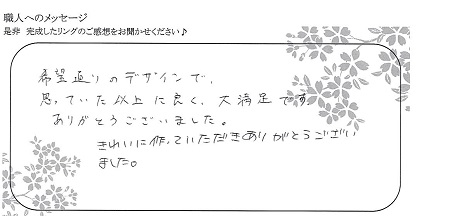 職人へのメッセージ
是非 完成したリングのご感想をお聞かせください♪
希望通りのデザインで、
思っていた以上に良く、大満足です。
ありがとうございました。
きれいに作っていただきありがとうござい
ました。